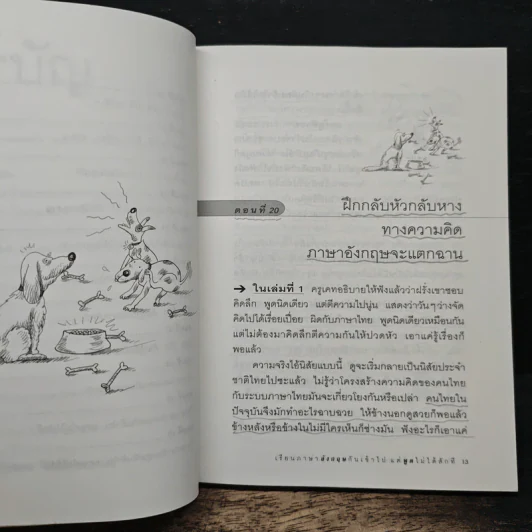 ตอนที่ 20
ฝึกกลับหัวกลับหาง
ทางความคิด
ภาษาอังกฤษจะแตกฉาน
→ ในเล่มที่ 1 ครูเคทอธิบายให้ฟังแล้วว่าฝรั่งเขาชอบ
คิดลึก พูดนิดเดียว แต่ตีความไปนู่น แสดงว่าวันๆว่างจัด
คิดไปได้เรื่อยเปื่อย ผิดกับภาษาไทย พูดนิดเดียวเหมือนกัน
แต่ไม่ต้องมาคิดลึกตีความกันให้ปวดหัว เอาแค่รู้เรื่องก็
พอแล้ว
ความจริงไอ้นิสัยแบบนี้ ดูจะเริ่มกลายเป็นนิสัยประจำ
ชาติไทยไปซะแล้ว ไม่รู้ว่าโครงสร้างความคิดของคนไทย
กับระบบภาษาไทยมันจะเกี่ยวโยงกันหรือเปล่า คนไทยใน
ปัจจุบันจึงมักทำอะไรฉาบฉวย ให้ข้างนอกดูสวยก็พอแล้ว
ข้างหลังหรือข้างในไม่มีใครเห็นก็ช่างมัน ฟังอะไรก็เอาแค่
เรียนภาษาอังกฤษกันเข้าไป แต่พูดไม่ได้สักที 13